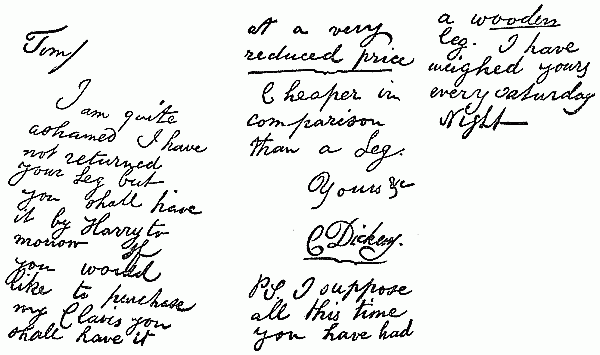 Tom/
I am quite
ashamed I have
not returned
your Leg but
you shall have
it by Harry to
morrow If
you would
like to purchase
my Clavis you
shall have it
at a very
reduced price
Cheaper in
comparison
than a Leg.
Yours &c
C Dickens.
PS. I suppose
all this time
you have had
a wooden
leg. I have
weighed yours
every saturday
Night